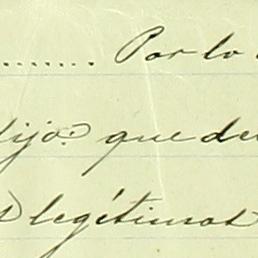 ........ Por lo
dijo: que de
legítimos